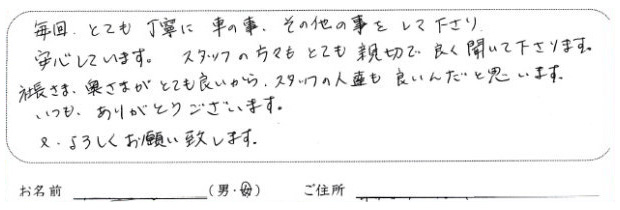 毎回、とても丁寧に車の事、その他の事をして下さり
安心しています。スタッフの方々もとても親切で良く聞いて下さります。
社長さま、奥さまがとても良いから、スタッフの人達も良いんだと思います。
いつも、ありがとうございます。
又、よろしくお願い致します。
お名前 (男・女) ご住所